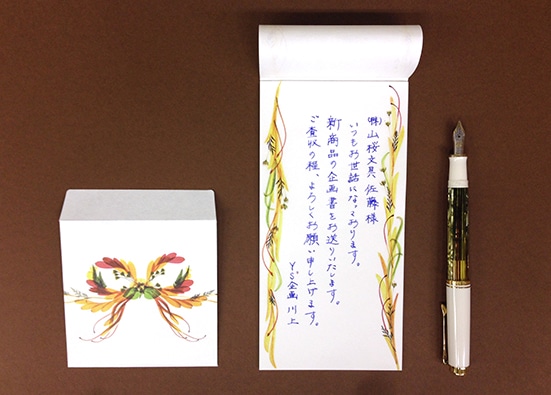 ㈱山桜文具 佐藤様
いつもお世話になっております。
新商品の企画書をお送りいたします。
ご査収の程、よろしくお願い申し上げます。
Y'S企画 川上